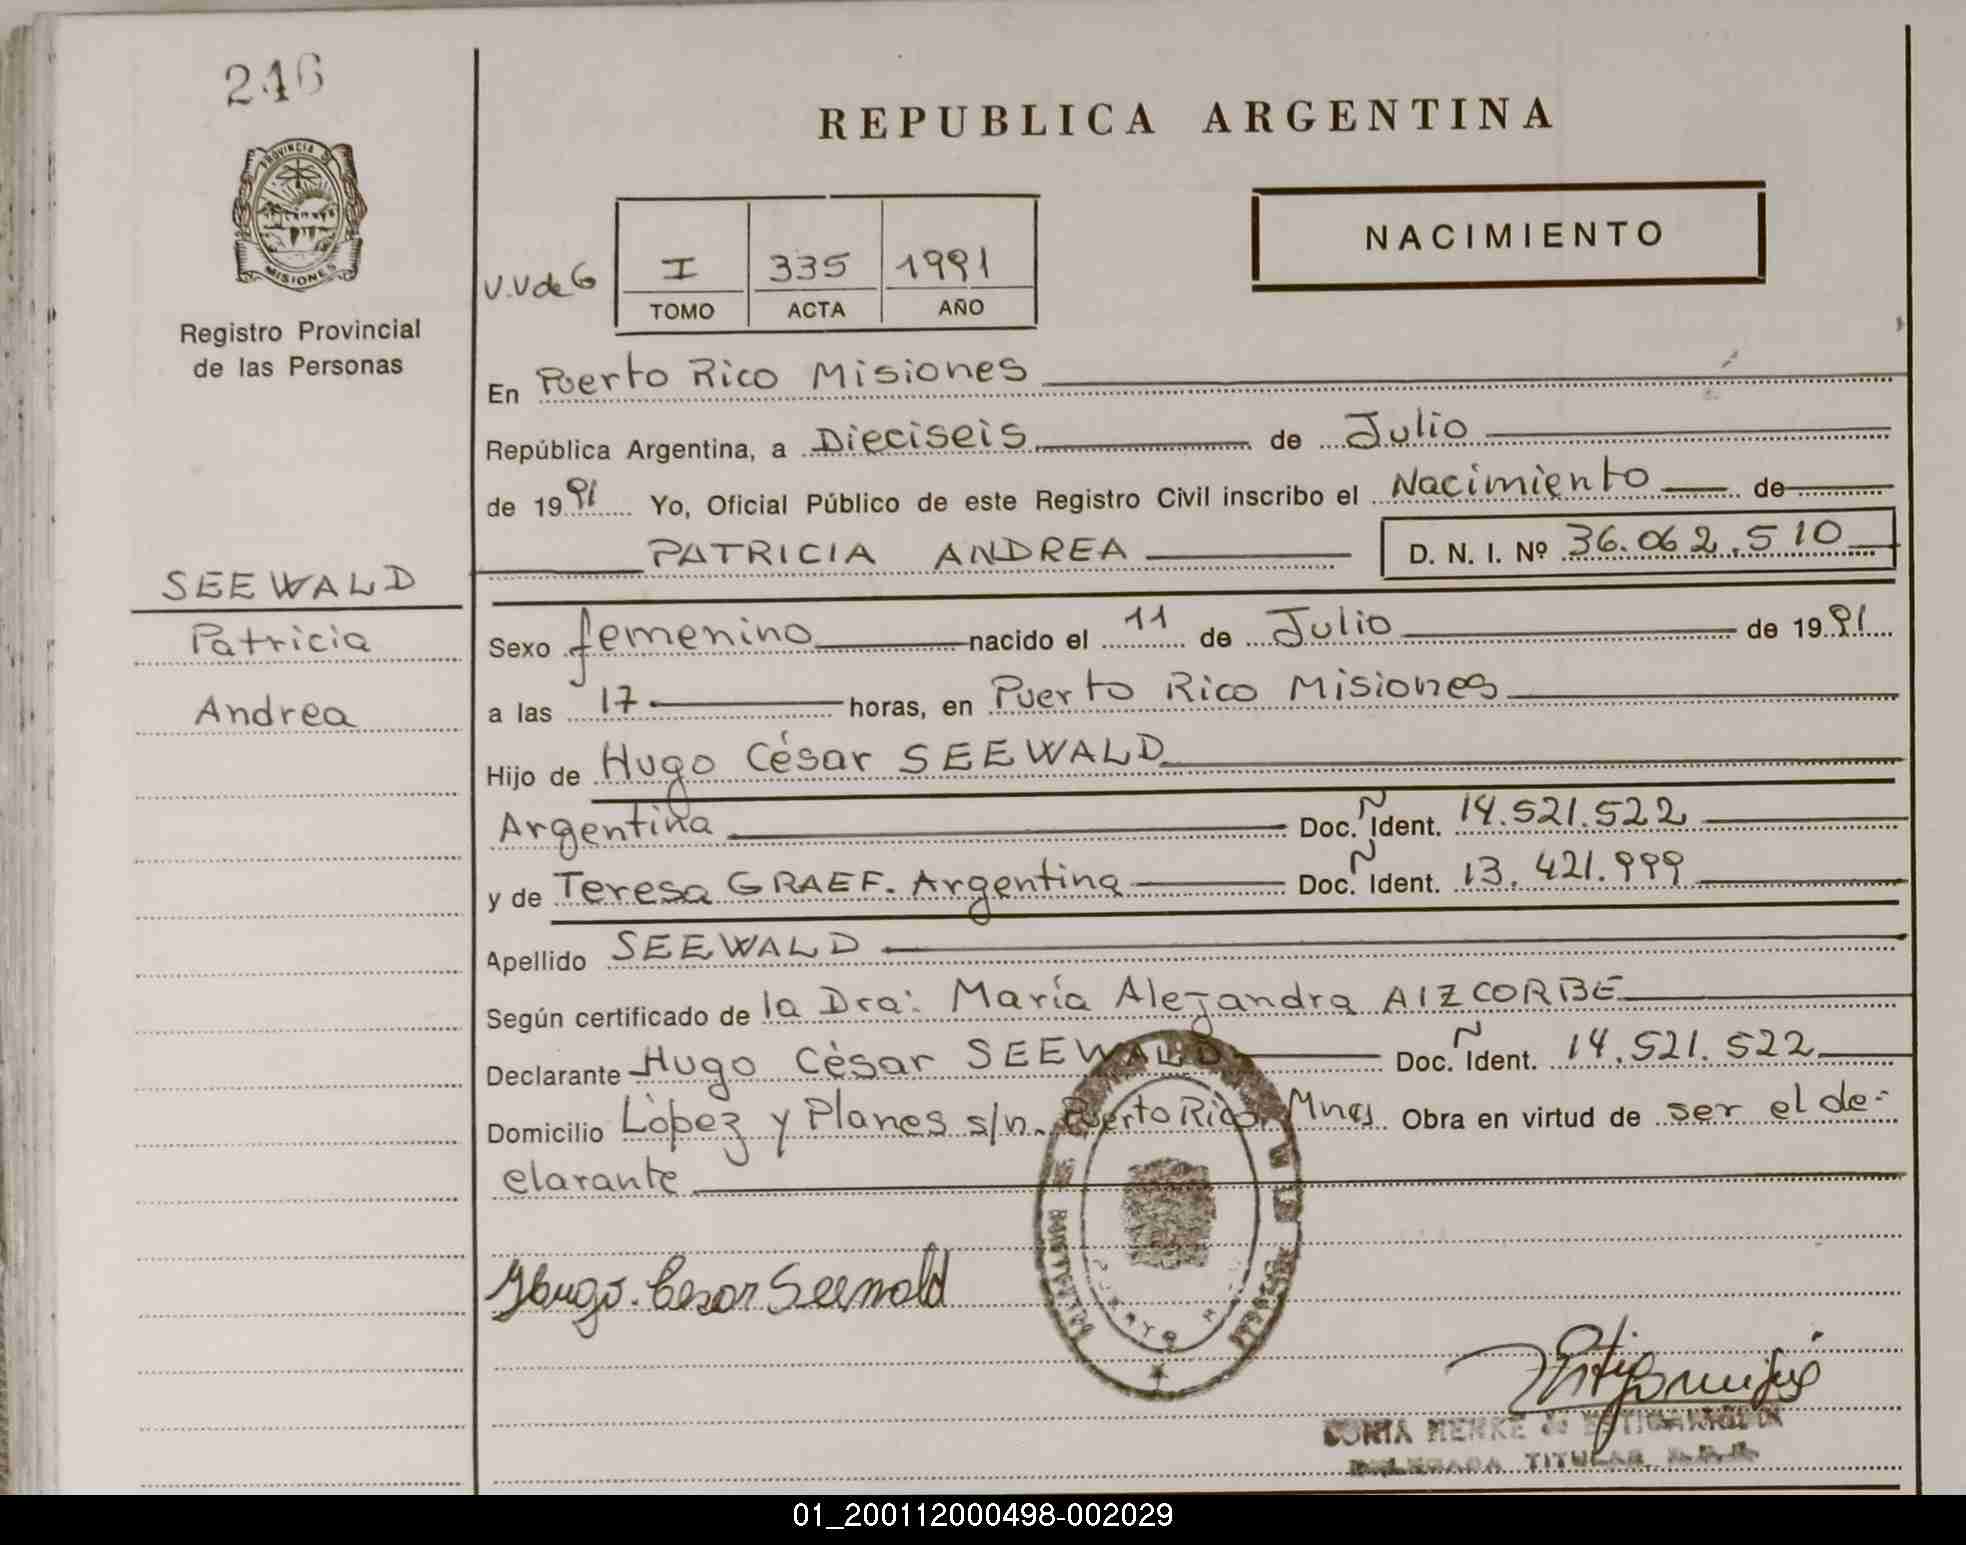 246
REPUBLICA ARGENTINA
PROVINCIA DE
MISIONES
Registro Provincial
de las Personas
NACIMIENTO
V.V de G
I 335 1991
TOMO ACTA AÑO
En Puerto Rico Misiones
República Argentina, a Dieciseis de Julio
de 1991 Yo, Oficial Público de este Registro Civil inscribo el Nacimiento de
PATRICIA ANDREA D. N. I. Nº 36.062.510
SEEWALD
Patricia
Andrea
Sexo femenino nacido el 11 de Julio de 1991
a las 17 horas, en Puerto Rico Misiones
Hijo de Hugo César SEEWALD
Argentina Doc. Ñ Ident. 14.521.522
y de Teresa GRAEF. Argentina Doc. Ñ Ident. 13.421.999
Apellido SEEWALD
Según certificado de la Dra: María Alejandra AIZCORBE
Declarante Hugo César SEEWALD Doc. Ñ Ident. 14.521.522
Domicilio López y Planes s/n. Puerto Rico Mnes Obra en virtud de ser el de-
clarante
Hugo. Cesar Seewald
SONIA MENKE de
DELEGADA TITULAR
01_200112000498-002029